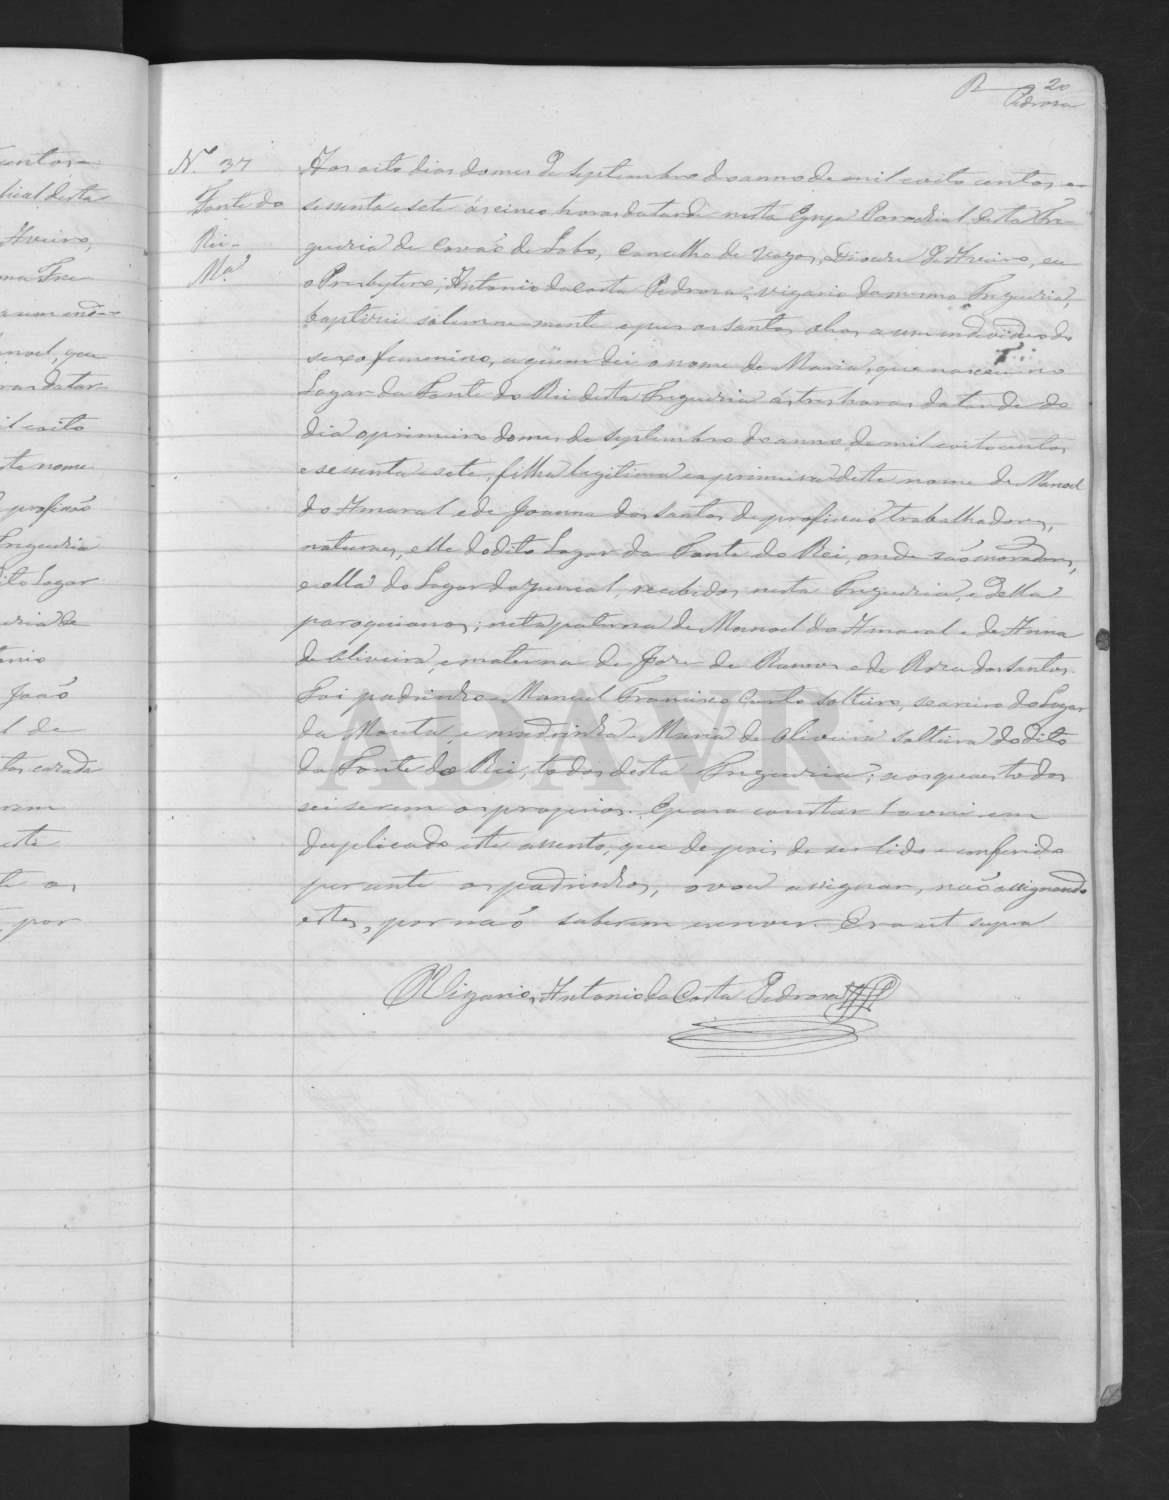 20
Pedrosa
N.º 37
Fonte do
Rei-
M.ª
Aos oito dias do mes de Septembro do anno de mil oito centos e
sessenta e sete ás cinco horas da tarde nesta Egreja Parochial desta Fre-
guezia de Covão do Lobo, Concelho de Vagos, Diocese de Aveiro, eu
o Presbytero, Antonio da Costa Pedrosa, vigario da mesma Freguezia,
baptizei solemne-mente e pus os santos oleos a um individuo do
sexo femenino, a quem dei o nome de Maria, que nasceu no
Lugar da Fonte do Rei desta Freguezia ás tres horas da tarde do
dia o primeiro do mes de Septembro do anno de mil oitocentos
e sessenta e sete, filha legitima e a primeira deste nome de Manoel
do Amaral e de Joanna dos Santos de profissão trabalhadores,
naturaes, elle do dito Lugar da Fonte do Rei, onde são moradores,
e ella do Lugar do Juncal, recebidos nesta Freguezia, e della
paroquianos; neta paterna de Manoel do Amaral e de Anna
de Oliveira, e materna de Jose de Ramos e de Roza dos Santos.
Foi padrinho Manuel Francisco Curto solteiro, seareiro do Lugar
da Mouta, e madrinha Maria de Oliveira solteira do dito
da Fonte do Rei, todos desta Freguezia, aos quaes todos
sei serem os proprios. E para constar lavrei em
duplicado este assento, que depois de ser lido e conferido
perante os padrinhos, o vou assignar, não assignando
estes, por não saberem escrever. Era ut supra
O Vigario, Antonio da Costa Pedrosa
ADAVR